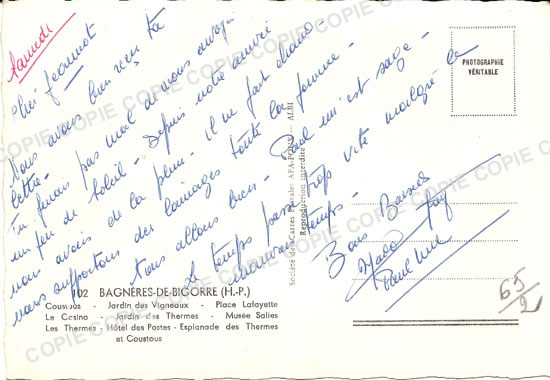 Samedi
Cher Jeannot
Nous avons bien reçu ta
lettre -
Tu ferais pas mal de nous envoyer
un peu de soleil - Depuis notre arrivée
nous avons de la pluie - il ne fait chaud -
nous supportons des lainages toute la journée -
Nous allons bien - Paul est sage -
Le temps passe trop vite malgré le
mauvais temps -
Bons Baisers
Paul
PHOTOGRAPHIE
VÉRITABLE
Société des Cartes Postales APA-POUX - ALBI
Reproduction interdite
102 BAGNÈRES-DE-BIGORRE (H.-P.)
Coustous - Jardin des Vigneaux - Place Lafayette
Le Casino - Jardin des Thermes - Musée Salies
Les Thermes - Hôtel des Postes - Esplanade des Thermes
et Coustous
65/2
COPIE COPIE COPIE COPIE COPIE COPIE